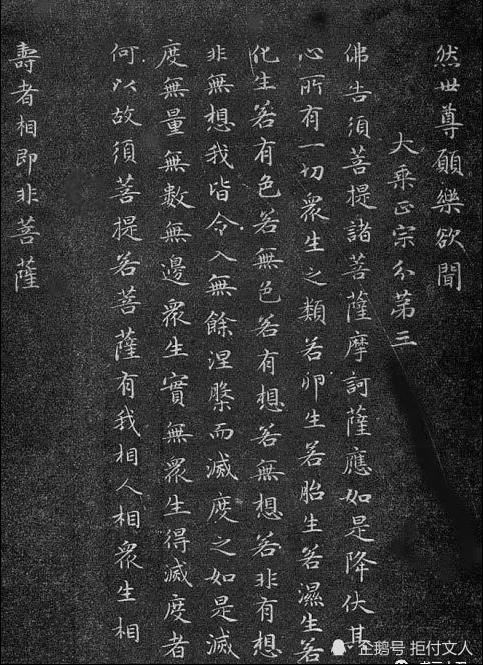 然世尊願樂欲聞
大乘正宗分第三
佛告須菩提諸菩薩摩訶薩應如是降伏其
心所有一切眾生之類若卵生若胎生若濕生若
化生若有色若無色若有想若無想若非有想
非無想我皆令入無餘涅槃而滅度之如是滅
度無量無數無邊眾生實無眾生得滅度者
何以故須菩提若菩薩有我相人相眾生相
壽者相即非菩薩
企鹅号 拒付文人